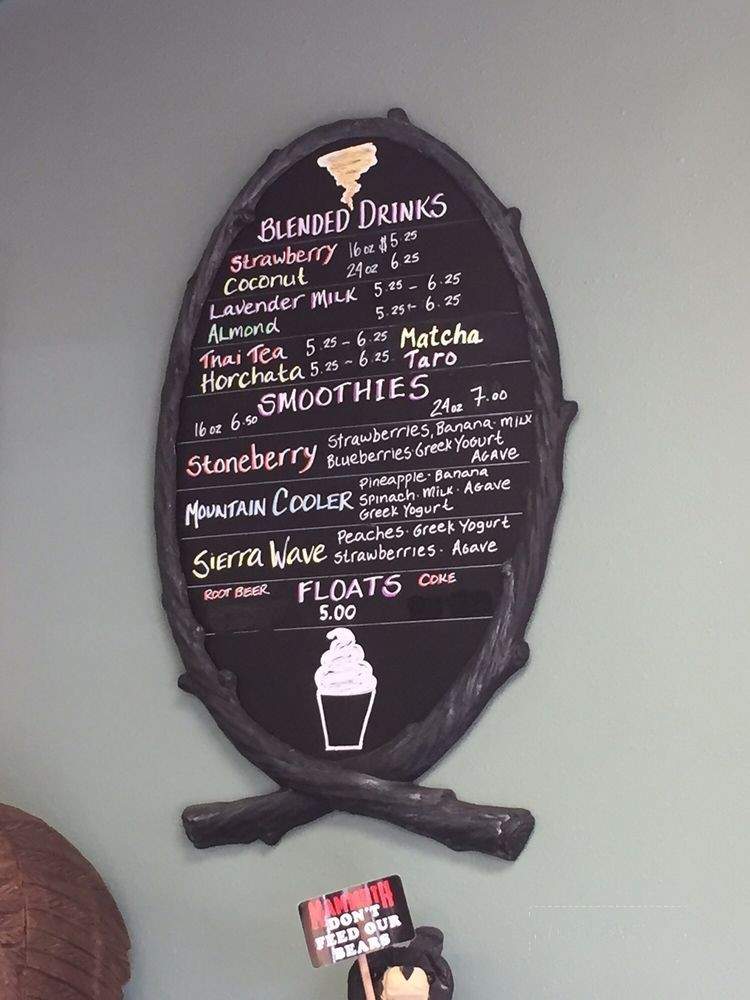 BLENDED DRINKS
Strawberry 16oz $5.25
Coconut 24oz 6.25
Lavender Milk 5.25 - 6.25
Almond 5.25 - 6.25
Thai Tea 5.25 - 6.25 Matcha
Horchata 5.25 - 6.25 Taro
SMOOTHIES
16oz 6.50 24oz 7.00
Stoneberry Strawberries, Banana. Milk
Blueberries Greek Yogurt
Agave
Mountain Cooler Pineapple. Banana
Spinach. Milk. Agave
Greek Yogurt
Sierra Wave Peaches. Greek Yogurt
Strawberries. Agave
ROOT BEER FLOATS COKE
5.00
MAMMOTH
DON'T
FEED OUR
BEARS